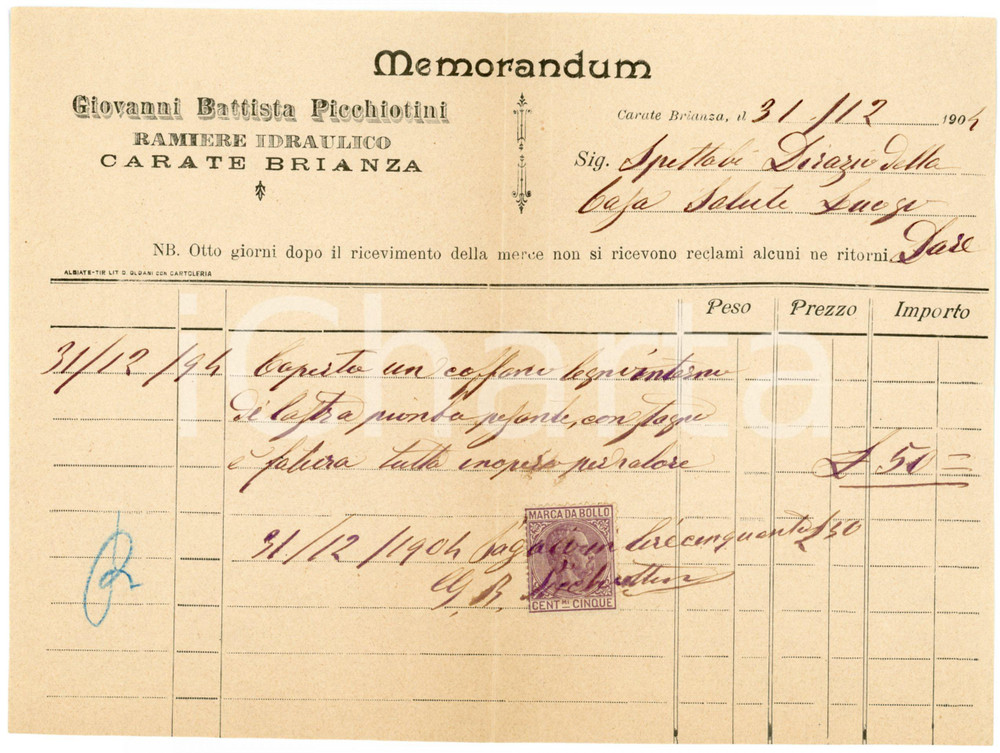 Memorandum
Giovanni Battista Picchiotini
RAMIERE IDRAULICO
CARATE BRIANZA
Carate Brianza, il 31/12 1904
Sig. Spettabi Dirazio della
Casa Salute Luogo
Dare
NB. Otto giorni dopo il ricevimento della merce non si ricevono reclami alcuni ne ritorni.
ALBIATE-TIP. LIT. D. OLDANI CON CARTOLERIA
Peso Prezzo Importo
31/12/94 Coperto un coffano legni interno
di lastra pionbo pesante, con stagno
è fatura tutta inopera pel valore £ 50=
MARCA DA BOLLO
31/12/1904 Pagato in lire cinquanta £50
G. B. Picchiottini
CENT.MI CINQUE
iCharta